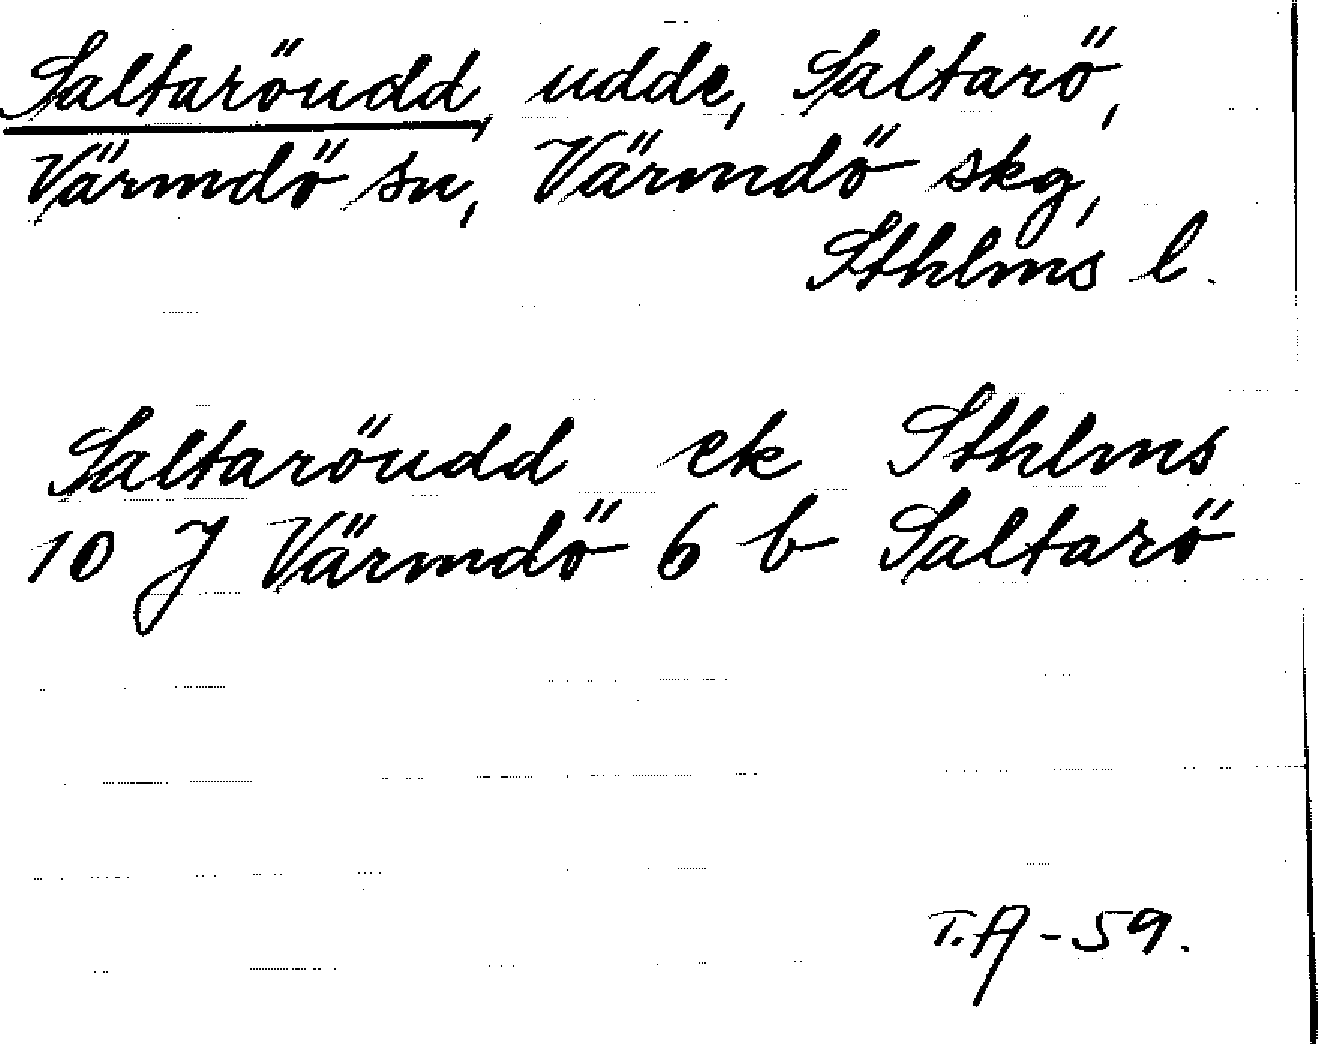 Saltaröudd, udde, Saltarö,
Värmdö sn, Värmdö skg,
Sthlms l.
Saltaröudd ek Sthlms
10 J Värmdö 6 b Saltarö
T.A-59.